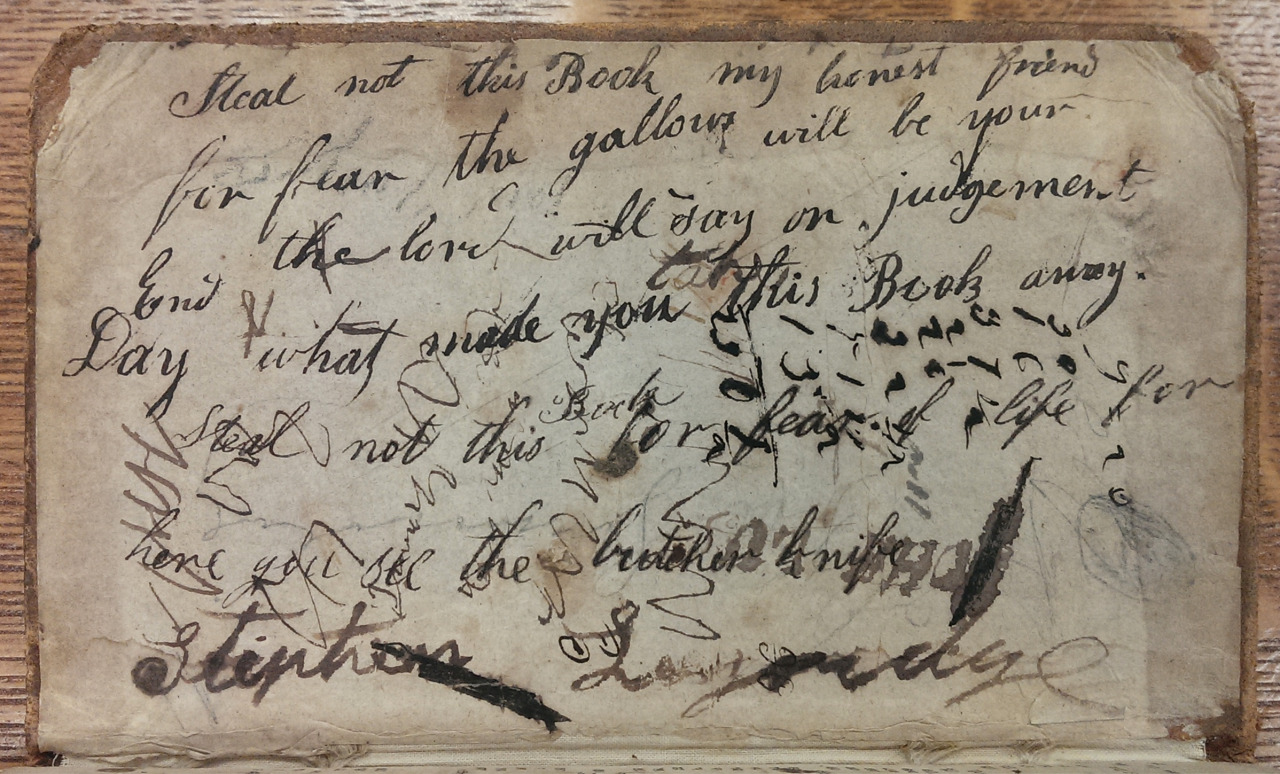 Steal not this Book my honest friend
for fear the gallows will be your
End the lord will say on judgement
Day what made you take this Book away.
Steal not this Book for fear of life for
here you see the butcher knife
Stephen